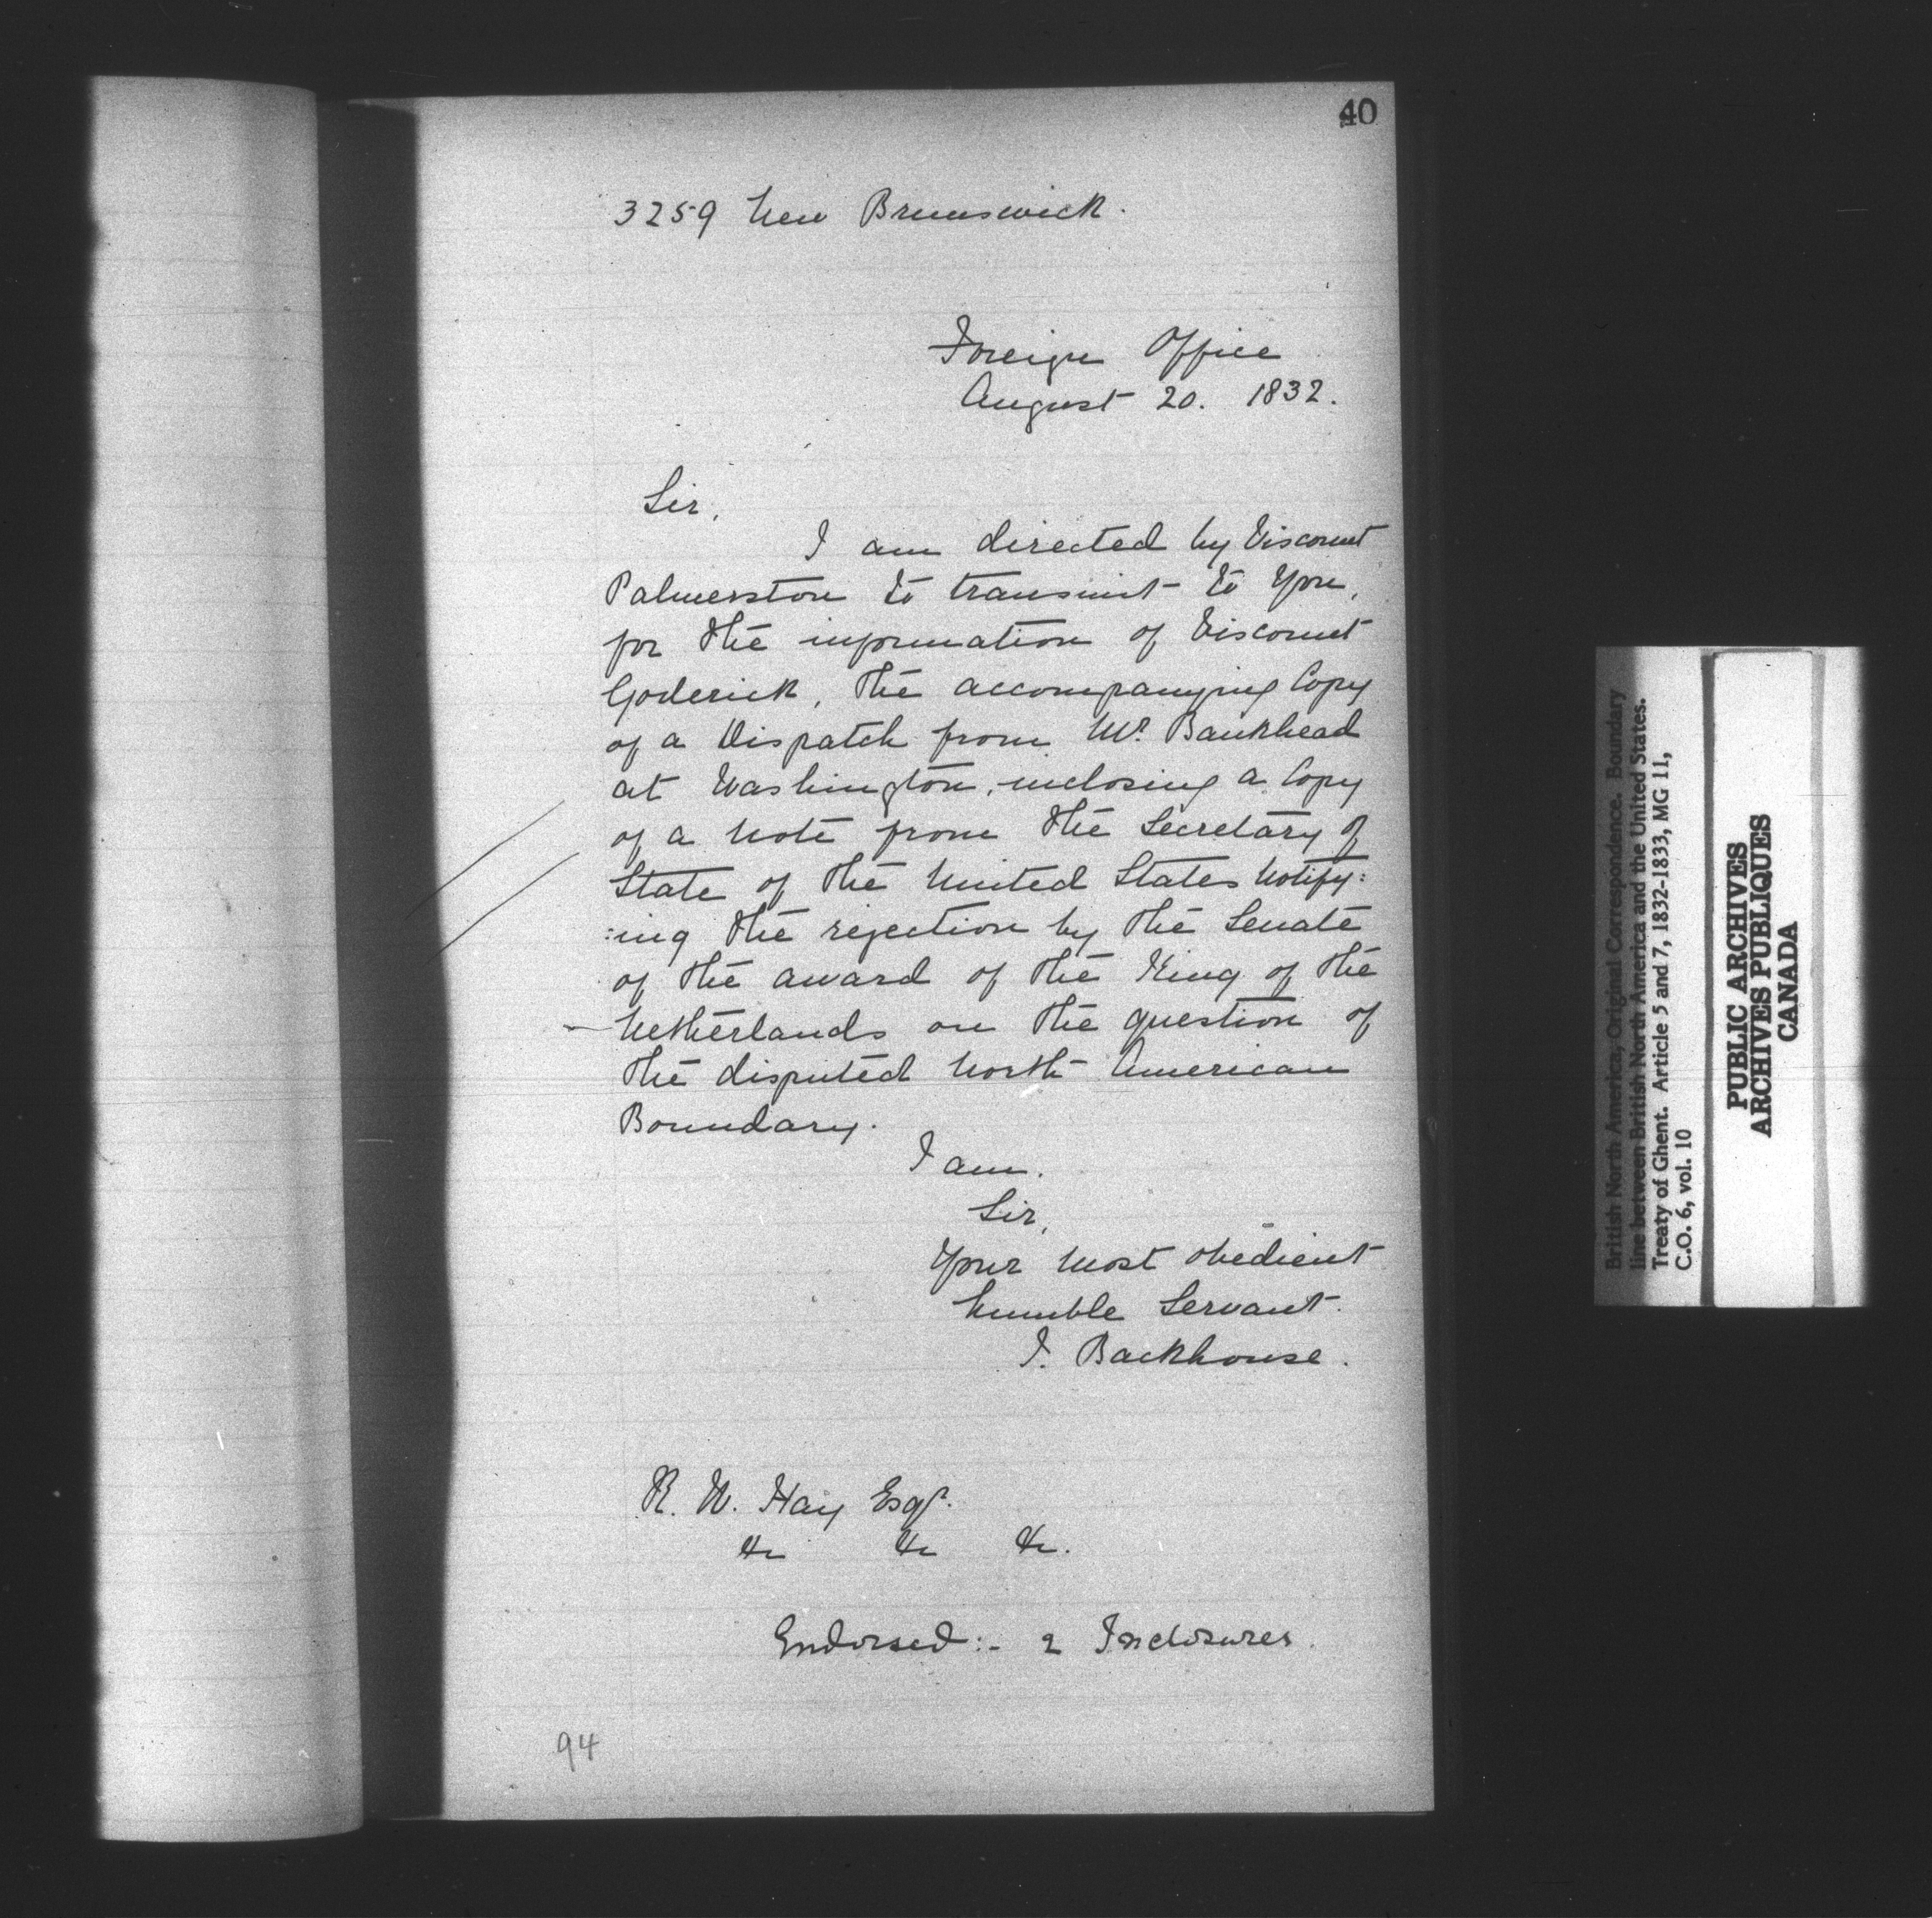 40
3259 New Brunswick.
Foreign Office
August 20. 1832.
Sir,
I am directed by Viscount
Palmerston to transmit to You,
for the information of Viscount
Goderick, the accompanying Copy
of a Dispatch from Mr. Bankhead
at Washington, inclosing a Copy
of a Note from the Secretary of
State of the United States Notify:
:ing the rejection by the Senate
of the award of the King of the
Netherlands on the question of
the disputed North American
Boundary.
I am.
Sir,
Your most obedient
humble Servant.
J. Backhouse.
R. W. Hay Esqr.
&c &c &c.
Endorsed:- 2 Inclosures.
94
British North America, Original Correspondence. Boundary
line between British North America and the United States.
Treaty of Ghent. Article 5 and 7, 1832-1833, MG 11,
C.O. 6, vol. 10
PUBLIC ARCHIVES
ARCHIVES PUBLIQUES
CANADA